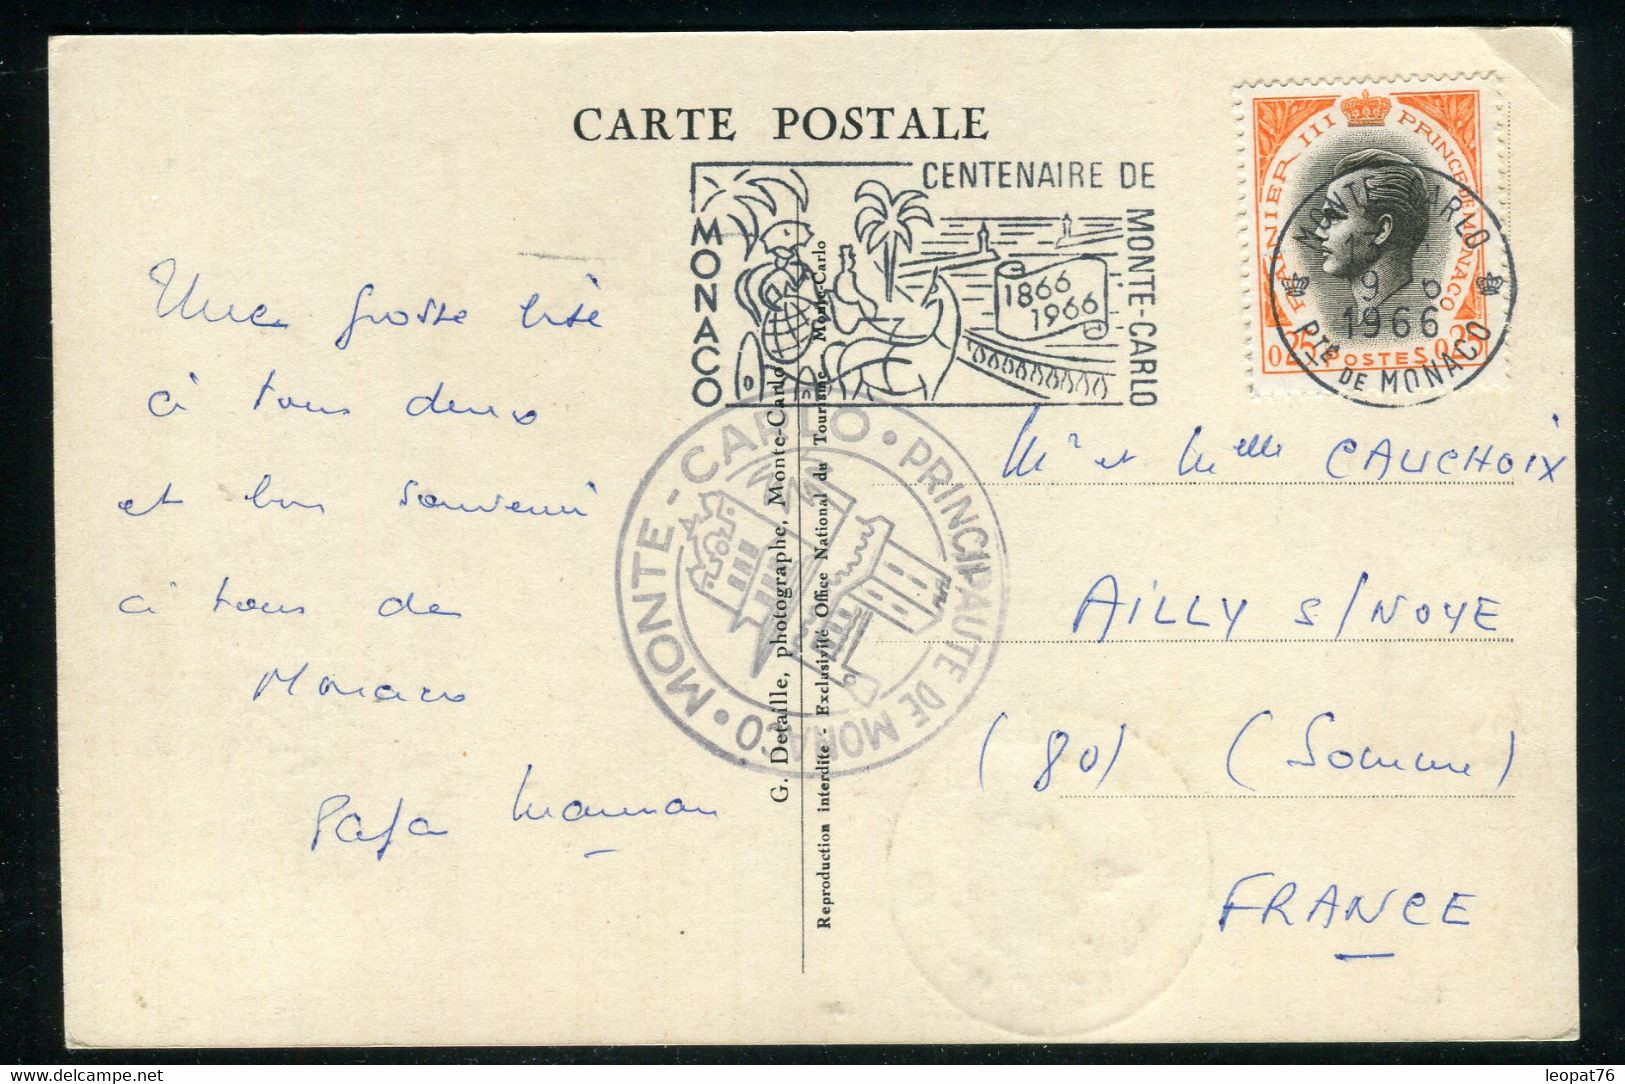 CARTE POSTALE
CENTENAIRE DE
MONTE-CARLO
MONACO
1866
1966
RAINIER III PRINCE DE MONACO
0.25 POSTES 0.25
MONTE CARLO
9 6
1966
Pté DE MONACO
MONTE-CARLO • PRINCIPAUTE DE MONACO •
G. Detaille, photographe, Monte-Carlo
Reproduction interdite - Exclusivité Office National du Tourisme Monte-Carlo
Une grosse bise
à tous deux
et bon souvenir
à tous de
Monaco
Papa Maman
Mr et Melle CAUCHOIX
AILLY S/NOYE
(80) (Somme)
FRANCE
leopat76
delcampe.net